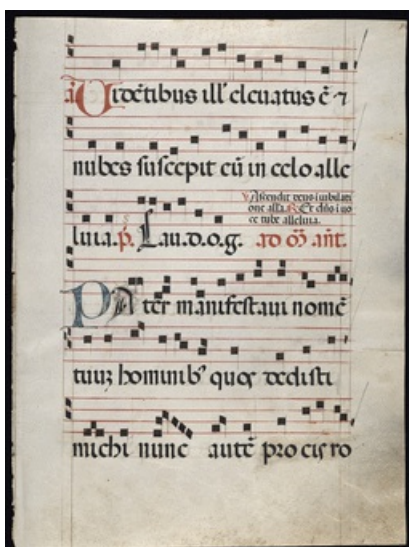 a Uidētibus ill' eleuatus ē ⁊
nubes suscepit eū in celo alle
V Ascendit deus i iubilati
one alľa. R Et dn̄s i uo
ce tube alleluia.
luia. p̄. s Lau.d.o.g. ad oō ant̄.
Pater manifestaui nomē
tuuʒ hominibꝰ quos dedisti
michi nunc autē pro eis ro